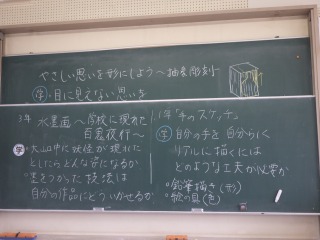 やさしい思いを形にしよう〜抽象彫刻
学・目に見えない思いを
3年 水墨画〜学校に現れた
百鬼夜行〜
学・大山中に妖怪が現れた
としたらどんな姿になるか
・墨をつかった技法は
自分の作品にどういかせるか
1.1年「手のスケッチ」
学 自分の手を自分らしく
リアルに描くには
どのような工夫が必要か
・鉛筆描き(形)
・絵の具(色)